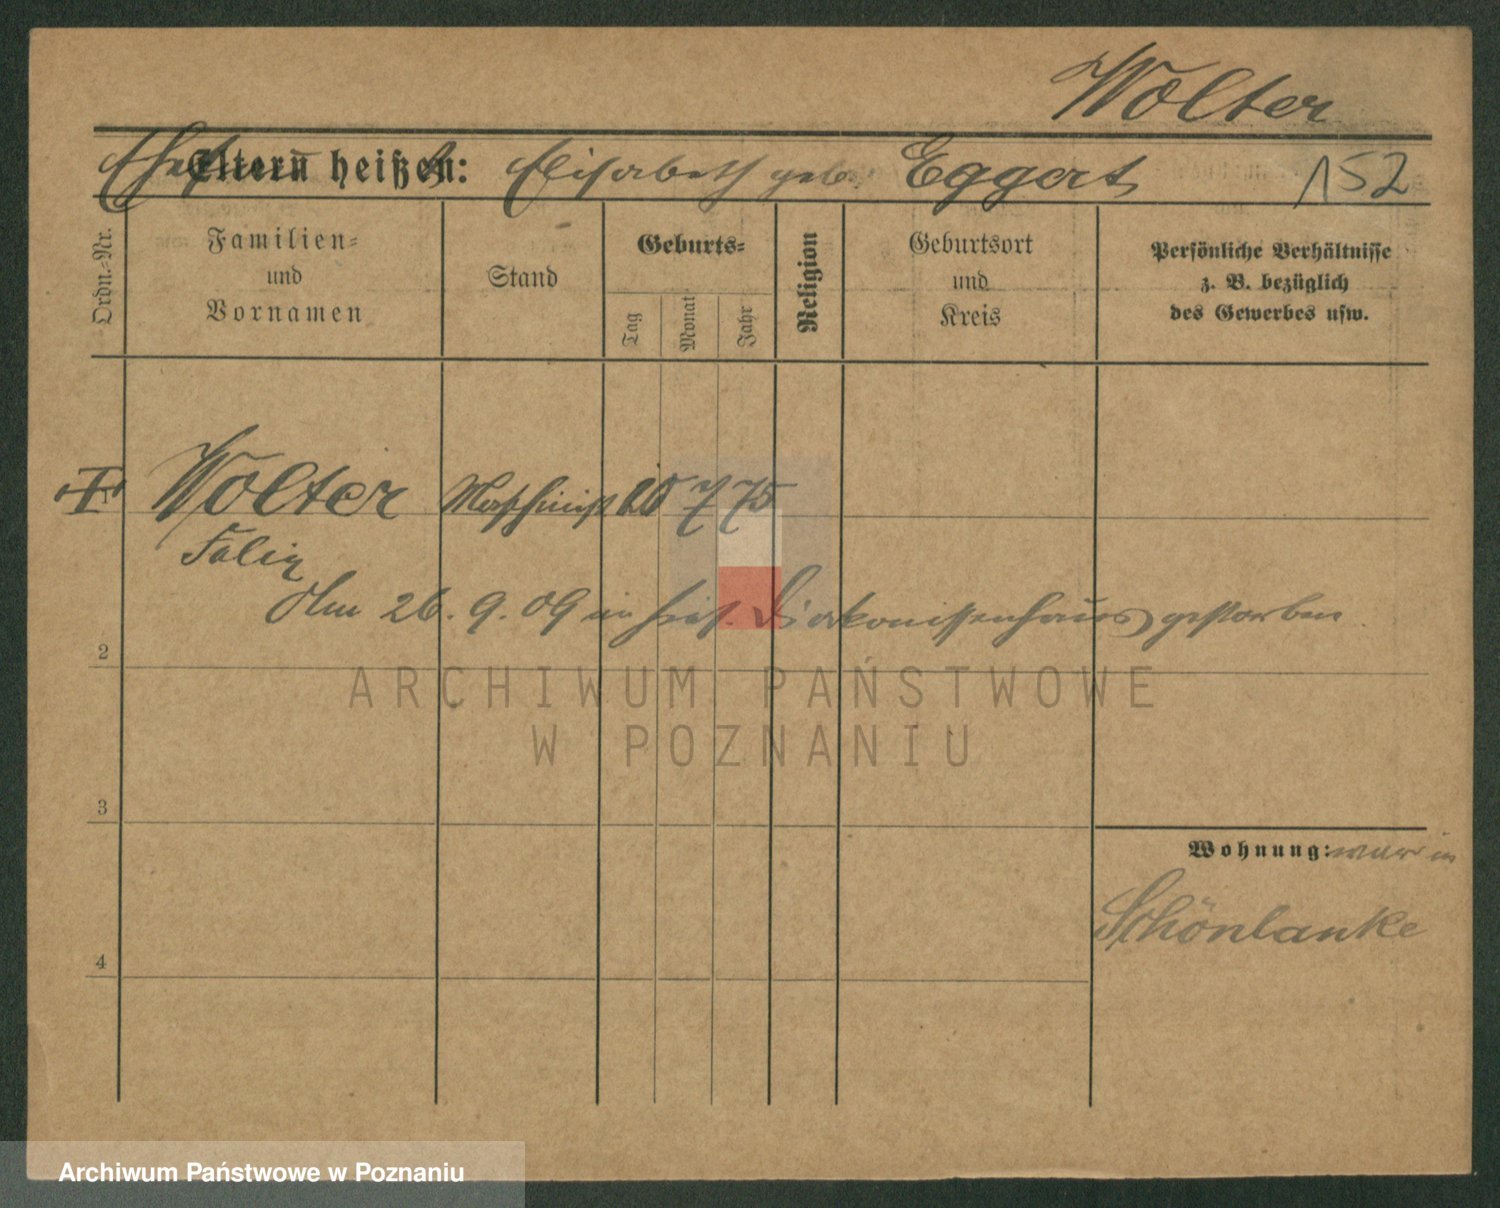 Wolter
Eltern heißen: Elisabeth geb. Eggert 152
Ordn.-Nr.
Familien-
und
Vornamen
Stand
Geburts-
Tag
Monat
Jahr
Religion
Geburtsort
und
Kreis
Persönliche Verhältnisse
z. B. bezüglich
des Gewerbes usw.
1 Wolter Maschinist 10 7 75
Felix
Am 26. 9. 09 im Diakonissenhaus gestorben
2
ARCHIWUM PAŃSTWOWE
W POZNANIU
3
Wohnung: war in
Schönlanke
4
Archiwum Państwowe w Poznaniu